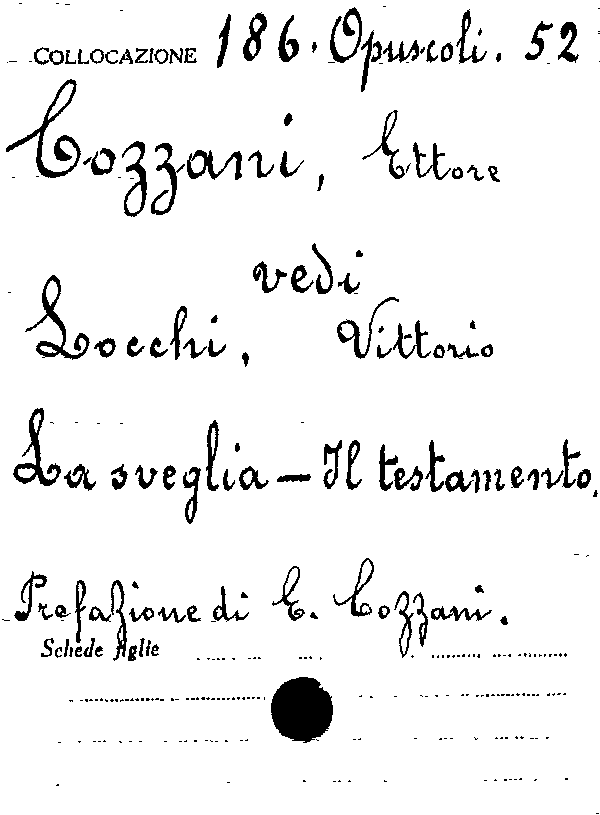 COLLOCAZIONE 186. Opuscoli. 52
Cozzani, Ettore
vedi
Locchi, Vittorio
La sveglia - Il testamento.
Prefazione di E. Cozzani.
Schede figlie